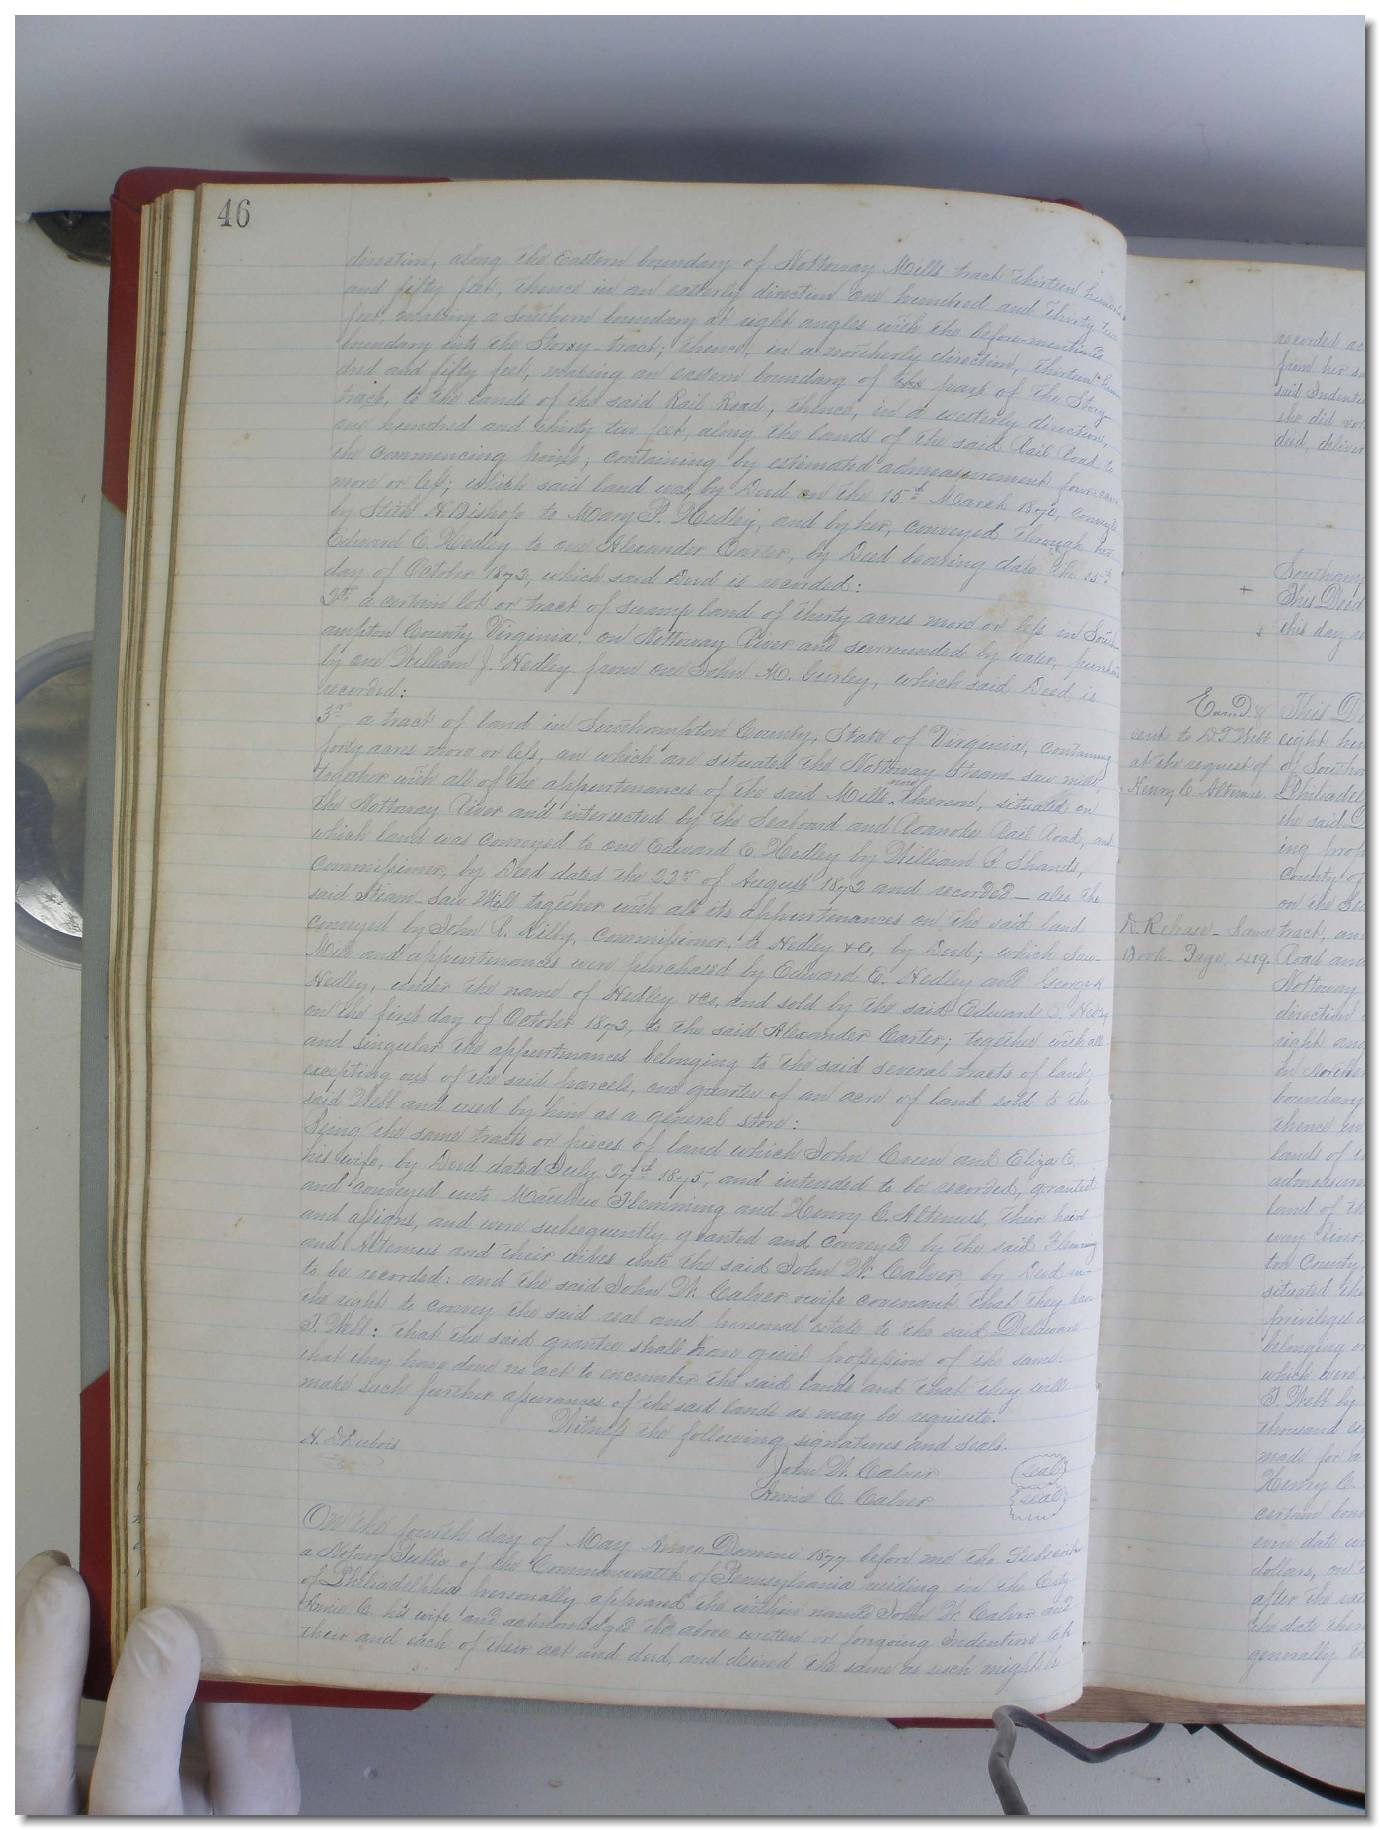 46
direction, along the Eastern boundary of Nottoway Mills tract thirteen hundred
and fifty feet, thence in an easterly direction one hundred and thirty two
feet, making a Southern boundary at right angles with the before-mentioned
boundary into the Story-tract; thence, in a northerly direction, thirteen hun-
dred and fifty feet, making an eastern boundary of the part of the Story
track, to the lands of the said Rail Road, thence, in a westerly direction,
one hundred and thirty two feet, along the lands of the said Rail Road to
the commencing point, containing by estimated admeasurement four acres
more or less; which said land was, by Deed on the 15th March 1870, conveyed
by Stith H. Bishop to Mary P. Hedley, and by her, conveyed through her
Edward E. Hedley to one Alexander Carter, by Deed bearing date the 15th
day of October 1873, which said Deed is recorded:
a certain lot or tract of swamp land of thirty acres more or less in South-
ampton County Virginia, on Nottoway River and surrounded by water,
by one William J. Hedley from one John M. Gurley, which said Deed is
recorded:
3rd a tract of land in Southampton County, State of Virginia, containing
forty acres more or less, on which are situated the Nottoway Steam-saw mills,
together with all of the appurtenances of the said Mills now thereon, situated on
the Nottoway River and intersected by the Seaboard and Roanoke Rail Road, and
which land was conveyed to one Edward E. Hedley by William B. Shands,
Commissioner, by Deed dated the 22nd of August 1872 and recorded - also the
said Steam-Saw Mill together with all its appurtenances on the said land
conveyed by John R. Kilby, Commissioner, to Hedley & Co, by Deed; which Saw-
Mill and appurtenances were purchased by Edward E. Hedley and George
Hedley, under the name of Hedley & Co, and sold by the said Edward E. Hedley
on the first day of October 1873, to the said Alexander Carter; together with all
and singular the appurtenances belonging to the said several tracts of land,
excepting out of the said parcels, one quarter of an acre of land sold to the
said Webb and used by him as a general store:
Being the same tracts or pieces of land which John Green and Eliza E.
his wife, by Deed dated July 27th 1875, and intended to be recorded, granted
and conveyed unto Matthew Flemming and Henry C. Altemus, their heirs
and assigns, and were subsequently granted and conveyed by the said Flemming
and Altemus and their wives unto the said John W. Calver, by Deed in-
to be recorded: and the said John W. Calver & wife covenant that they have
the right to convey the said real and personal estate to the said Delaware
T. Webb: that the said grantee shall have quiet possession of the same.
that they have done no act to encumber the said lands and that they will
make such further assurances of the said lands as may be requisite.
Witness the following signatures and seals.
H. D. Dubois
John W. Calver (seal)
Annie C. Calver (seal)
On the fourth day of May Anno Domini 1877 before me the Subscriber
a Notary Public of the Commonwealth of Pennsylvania residing in the City
of Philadelphia personally appeared the within named John W. Calver and
Annie C. his wife and acknowledged the above written or forgoing Indenture to be
their and each of their act and deed, and desired the same as such might be
recorded ac
from her s
said Indentu
she did vol
deed, deliver
Southamp
This Deed
this day
Exam'd &
sent to D.T. Webb
at the request of
Henry C. Altemus.
D. Release - Same
Book - Page, 419
This De
eight hun
of Southa
Philadel
the said D
ing prop
County of
on the Se
track, an
Road and
Nottoway
direction
right ang
in Norther
boundary
thence in
lands of t
admeasure
land of th
way River
ton County,
situated the
privileges a
belonging or
which were
T. Webb by
thousand
made for
Henry C.
certain bond
even date
dollars, on
after the
the date there
generally th